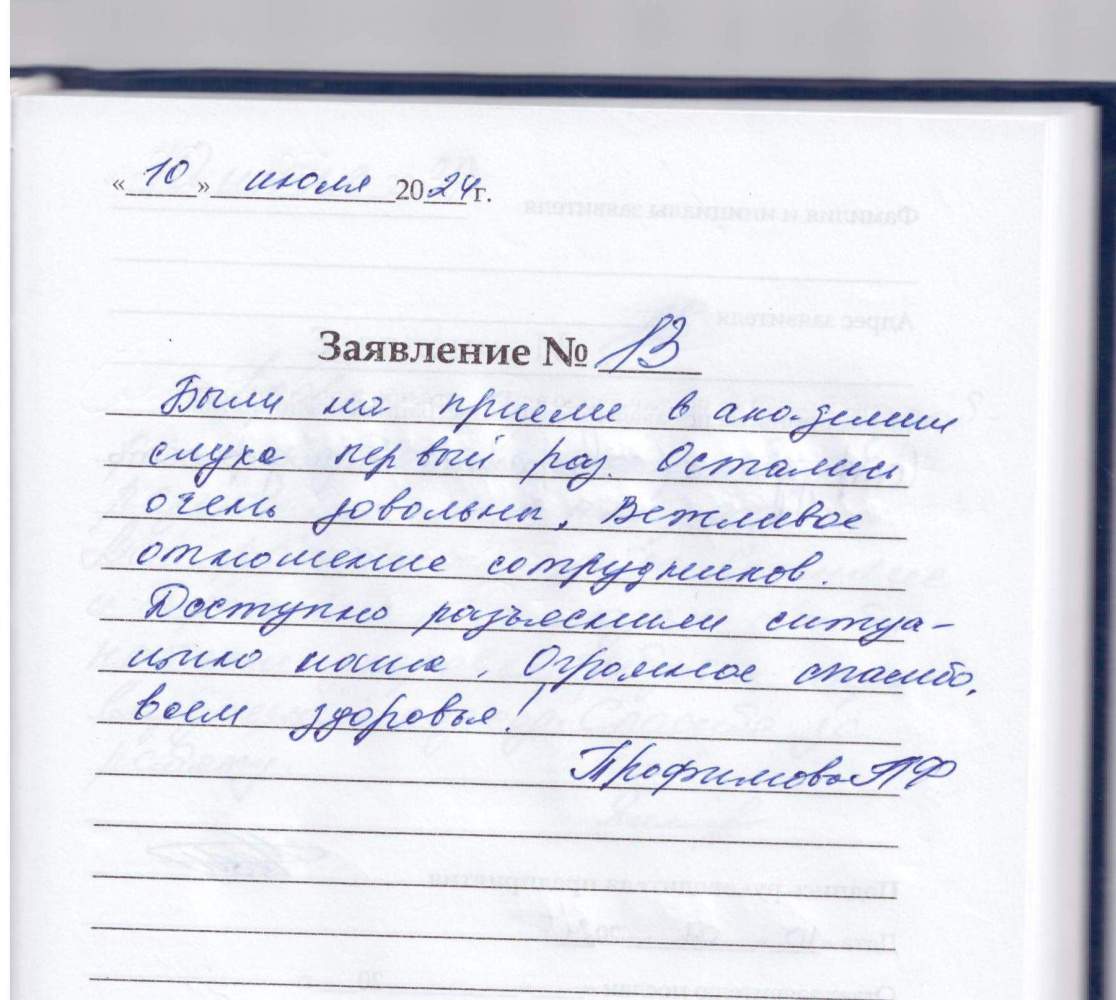 «10» июля 2024г.
Заявление № 13
Были на приеме в академии
слуха первый раз. Остались
очень довольны. Вежливое
отношение сотрудников.
Доступно разъяснили ситуа-
цию наше. Огромное спасибо,
всем здоровья!
Трофимова ПФ
Фамилия и инициалы заявителя
Адрес заявителя
Подпись руководителя предприятия
Дата